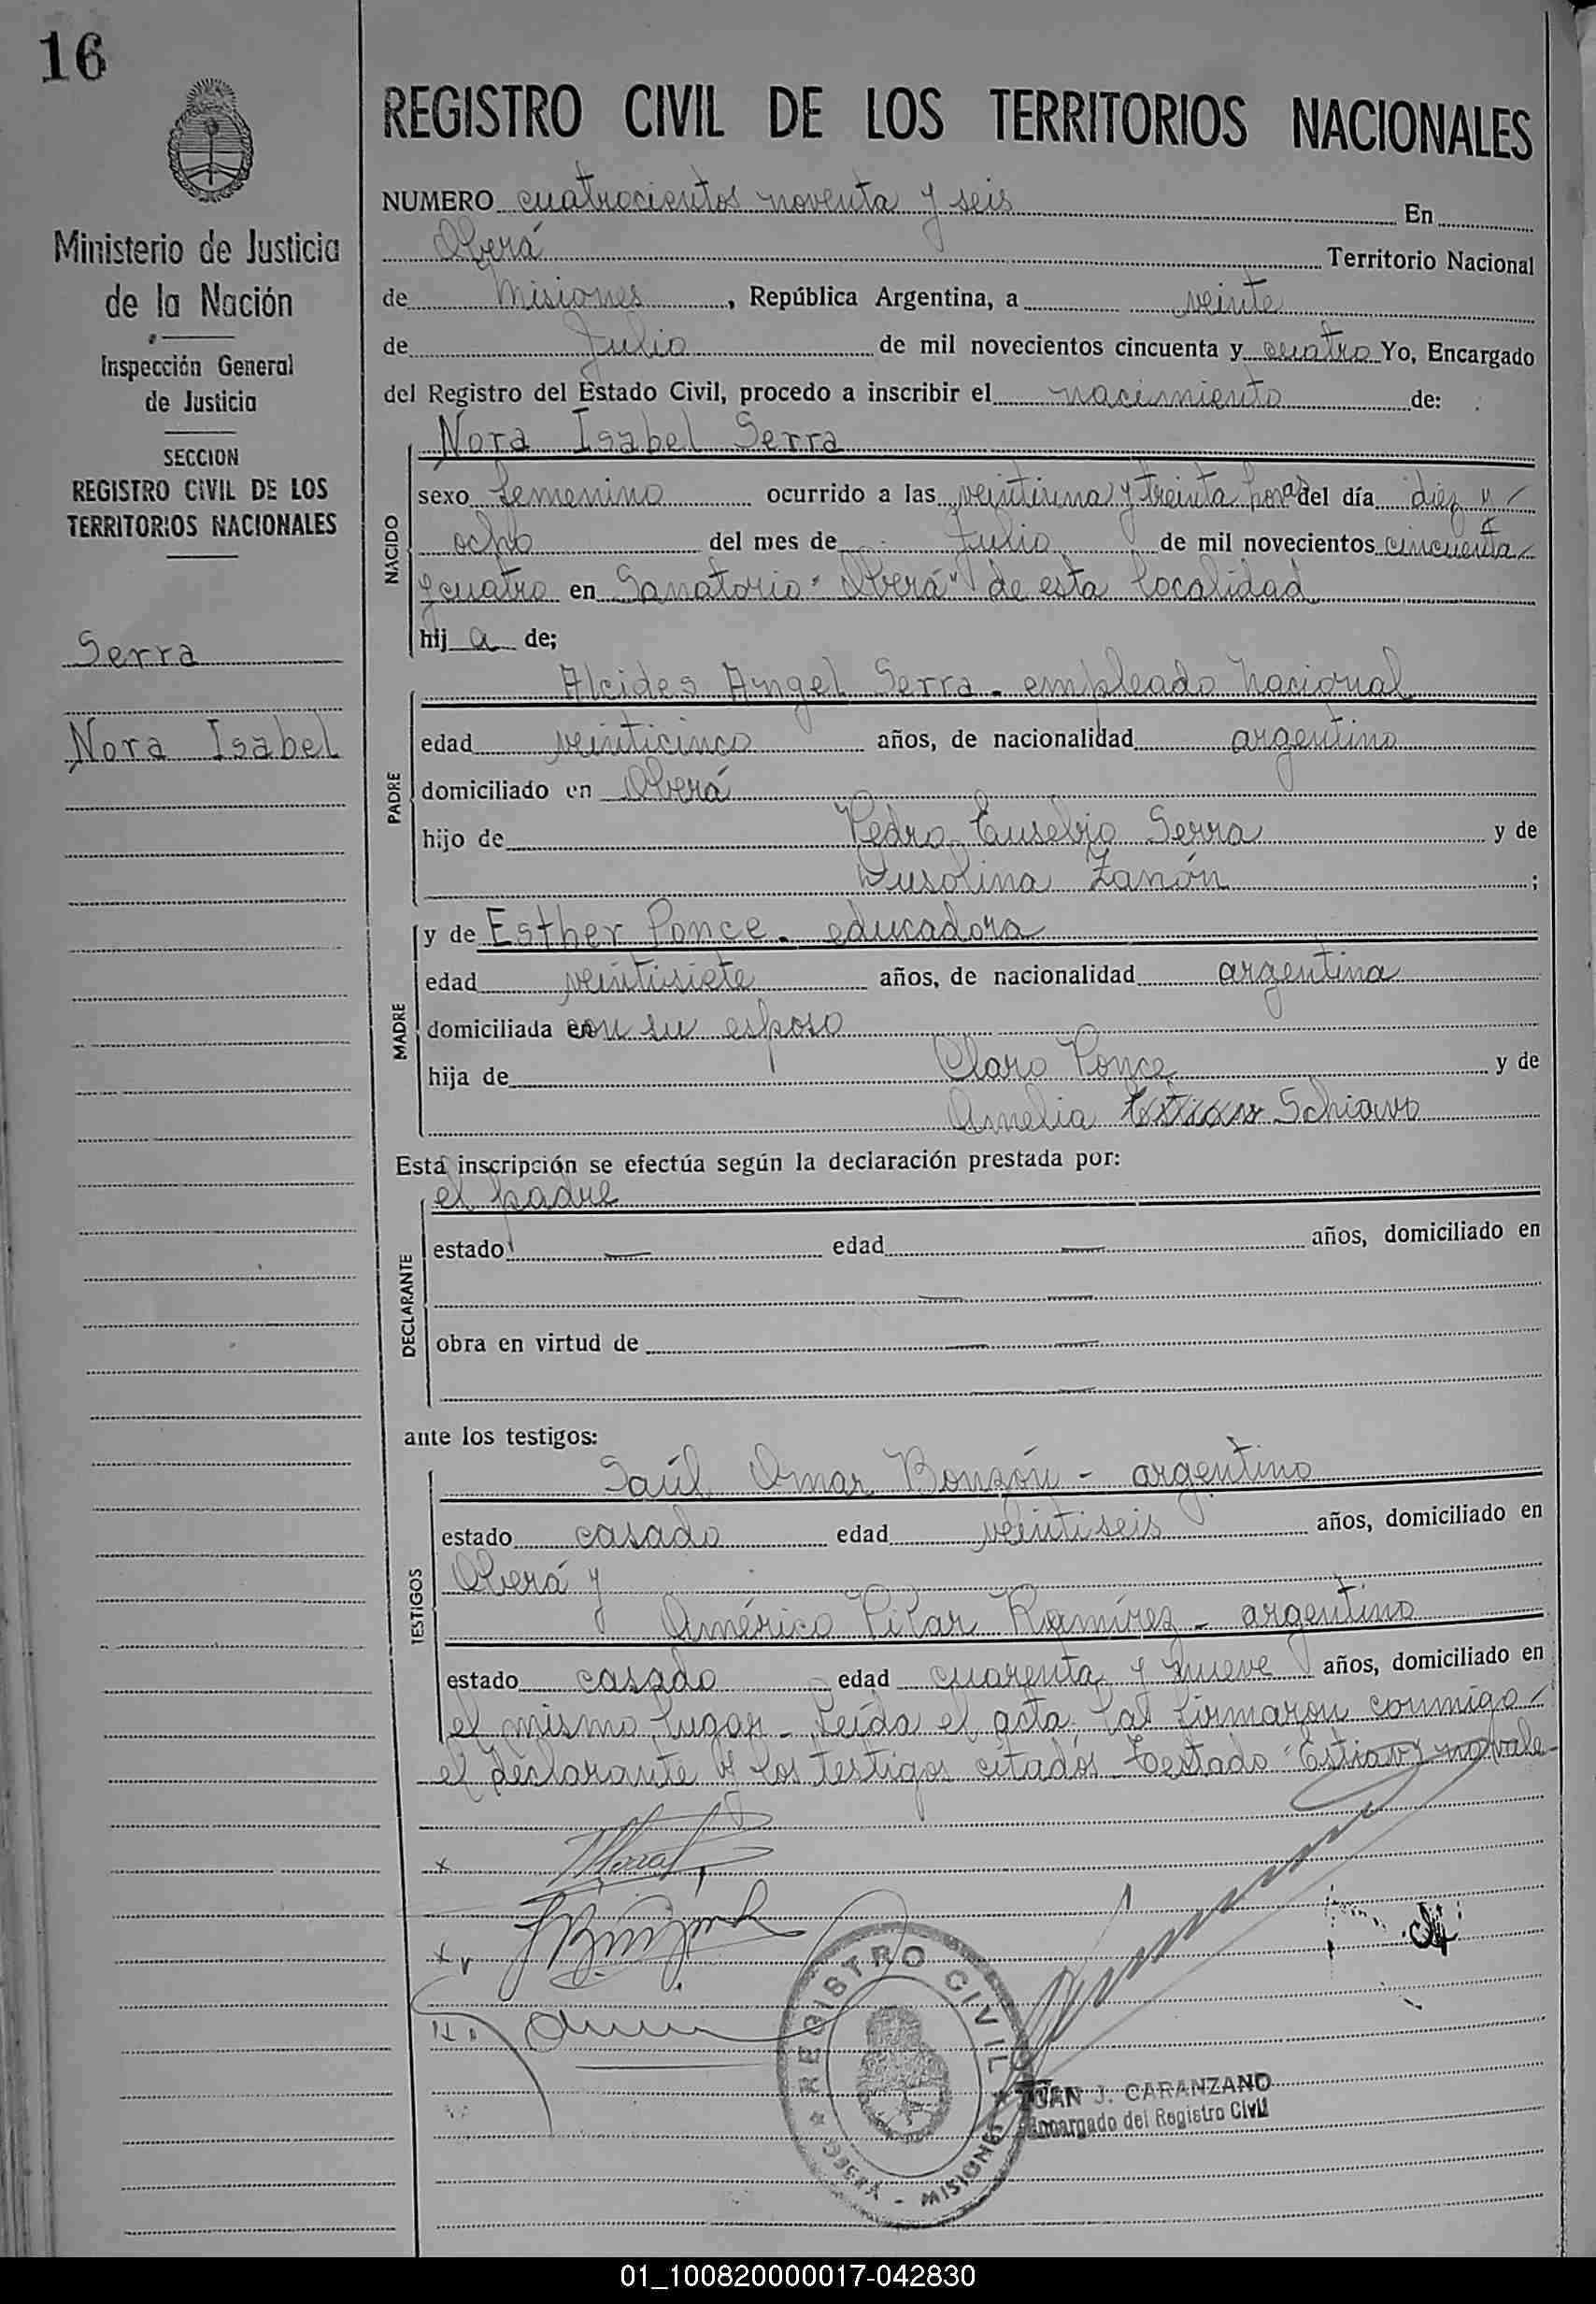 16
Ministerio de Justicia
de la Nación
Inspección General
de Justicia
SECCION
REGISTRO CIVIL DE LOS
TERRITORIOS NACIONALES
Serra
Nora Isabel
REGISTRO CIVIL DE LOS TERRITORIOS NACIONALES
NUMERO cuatrocientos noventa y seis En
Oberá Territorio Nacional
de Misiones, República Argentina, a veinte
de Julio de mil novecientos cincuenta y cuatro Yo, Encargado
del Registro del Estado Civil, procedo a inscribir el nacimiento de:
NACIDO
Nora Isabel Serra
sexo femenino ocurrido a las veintiuna y treinta horas del día diez y
ocho del mes de Julio de mil novecientos cincuenta
y cuatro en Sanatorio "Oberá" de esta localidad
hij a de;
PADRE
Alcides Angel Serra - empleado nacional
edad veinticinco años, de nacionalidad argentino
domiciliado en Oberá
hijo de Pedro Eusebio Serra y de
Dusolina Zanón ;
MADRE
y de Esther Ponce - educadora
edad veintisiete años, de nacionalidad argentina
domiciliada en con su esposo
hija de Claro Ponce y de
Amelia Schiavo
Esta inscripción se efectúa según la declaración prestada por:
DECLARANTE
el padre
estado — edad — años, domiciliado en
— —
obra en virtud de — —
— —
ante los testigos:
TESTIGOS
Saúl Omar Bonzón - argentino
estado casado edad veintiseis años, domiciliado en
Oberá y
Américo Pilar Ramírez - argentino
estado casado edad cuarenta y nueve años, domiciliado en
el mismo lugar - Leída el acta la firmaron conmigo
el declarante y los testigos citados - Testado "Estiavo" no vale
REGISTRO CIVIL
OBERÁ - MISIONES
JUAN J. CARANZANO
Encargado del Registro Civil
01_100820000017-042830